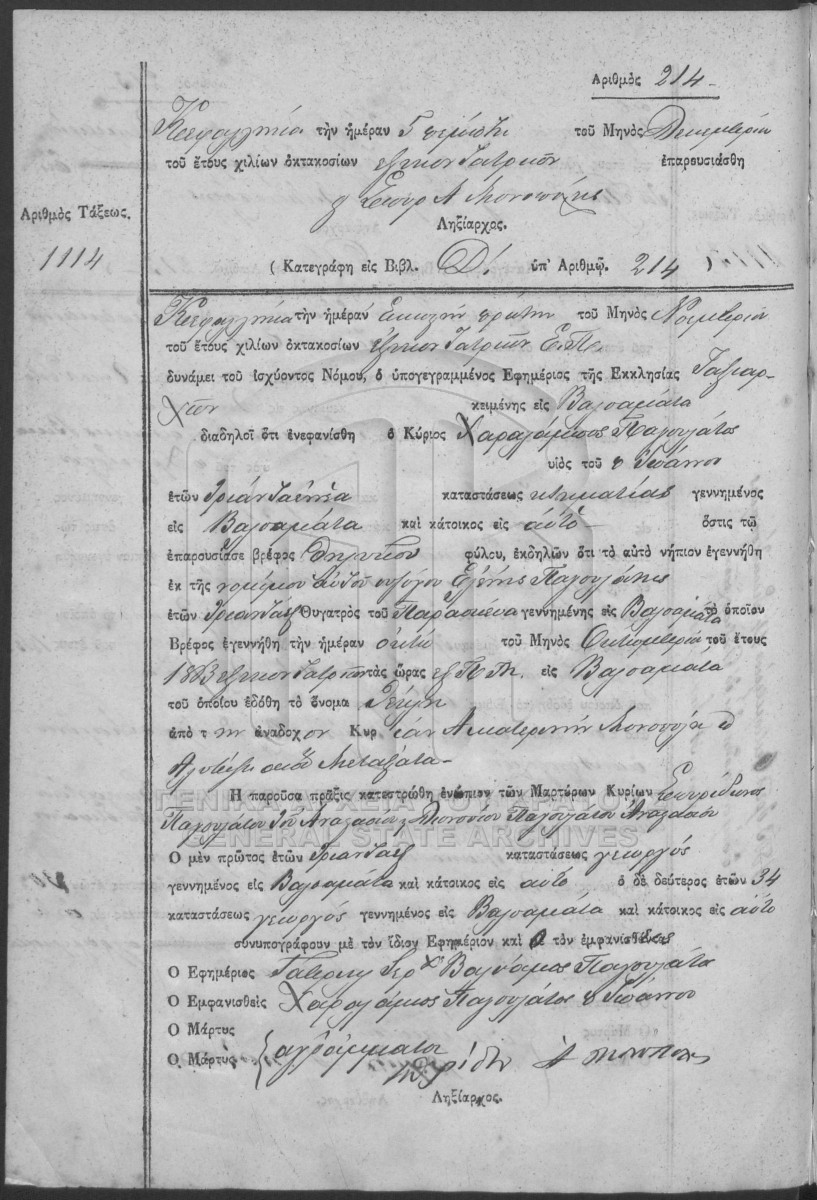 Ἀριθμὸς 214
Κεφαλληνία τὴν ἡμέραν 5 πέμπτη τοῦ Μηνὸς Δεκεμβρίου
τοῦ ἔτους χιλίων ὀκτακοσίων ἑξήκοντα τριῶν ἐπαρουσιάσθη
Ληξίαρχος.
Ἀριθμὸς Τάξεως.
1114
( Κατεγράφη εἰς Βιβλ. Δ! ὑπ' Ἀριθμῷ. 214 )
Κεφαλληνία τὴν ἡμέραν πρώτην τοῦ Μηνὸς Νοεμβρίου
τοῦ ἔτους χιλίων ὀκτακοσίων ἑξήκοντα τριῶν Ε. Π.
δυνάμει τοῦ ἰσχύοντος Νόμου, ὁ ὑπογεγραμμένος Ἐφημέριος τῆς Ἐκκλησίας Ταξιαρ-
χῶν κειμένης εἰς Βαλσαμάτα
διαδηλοῖ ὅτι ἐνεφανίσθη ὁ Κύριος Χαραλάμπος Παγουλάτος
υἱὸς τοῦ Ἰωάννου
ἐτῶν τριάντα ἐννέα καταστάσεως κτηματίας γεννημένος
εἰς Βαλσαμάτα καὶ κάτοικος εἰς αὐτὸ ὅστις τῷ
ἐπαρουσίασε βρέφος θηλυκοῦ φύλου, ἐκδηλῶν ὅτι τὸ αὐτὸ νήπιον ἐγεννήθη
ἐκ τῆς νομίμου αὐτοῦ συζύγου Ἑλένης Παγουλάτης
ἐτῶν τριάντα ἓξ Θυγατρὸς τοῦ Παρασκευᾶ γεννημένης εἰς Βαλσαμάτα τὸ ὁποῖον
Βρέφος ἐγεννήθη τὴν ἡμέραν ὀκτὼ τοῦ Μηνὸς Ὀκτωμβρίου τοῦ ἔτους
1863 ἑξήκοντα τριῶν τὰς ὥρας ἓξ Π. Μ. εἰς Βαλσαμάτα
τοῦ ὁποίου ἐδόθη τὸ ὄνομα
ἀπὸ τὴν ἀναδοχον Κυρίαν Αἰκατερίνην
Μεταξάτα
Ἡ παροῦσα πρᾶξις κατεστρώθη ἐνώπιον τῶν Μαρτύρων Κυρίων Σπυρίδωνος
Παγουλάτου τοῦ Ἀναστασίου Διονυσίου Παγουλάτου Ἀναστασίου
Ὁ μὲν πρῶτος ἐτῶν τριάντα ἓξ καταστάσεως γεωργὸς
γεννημένος εἰς Βαλσαμάτα καὶ κάτοικος εἰς αὐτὸ ὁ δὲ δεύτερος ἐτῶν 34
καταστάσεως γεωργὸς γεννημένος εἰς Βαλσαμάτα καὶ κάτοικος εἰς αὐτὸ
συνυπογράφουν μὲ τὸν ἴδιον Ἐφημέριον καὶ τὸν ἐμφανισθέντα
Ὁ Ἐφημέριος Γαβριὴλ Ἱερ Παγουλάτος
Ὁ Ἐμφανισθεὶς Χαραλάμπος Παγουλάτος Ἰωάννου
Ὁ Μάρτυς
Ὁ Μάρτυς { ἀγράμματοι
Ληξίαρχος.
ΓΕΝΙΚΑ ΑΡΧΕΙΑ ΤΟΥ ΚΡΑΤΟΥΣ
GENERAL STATE ARCHIVES